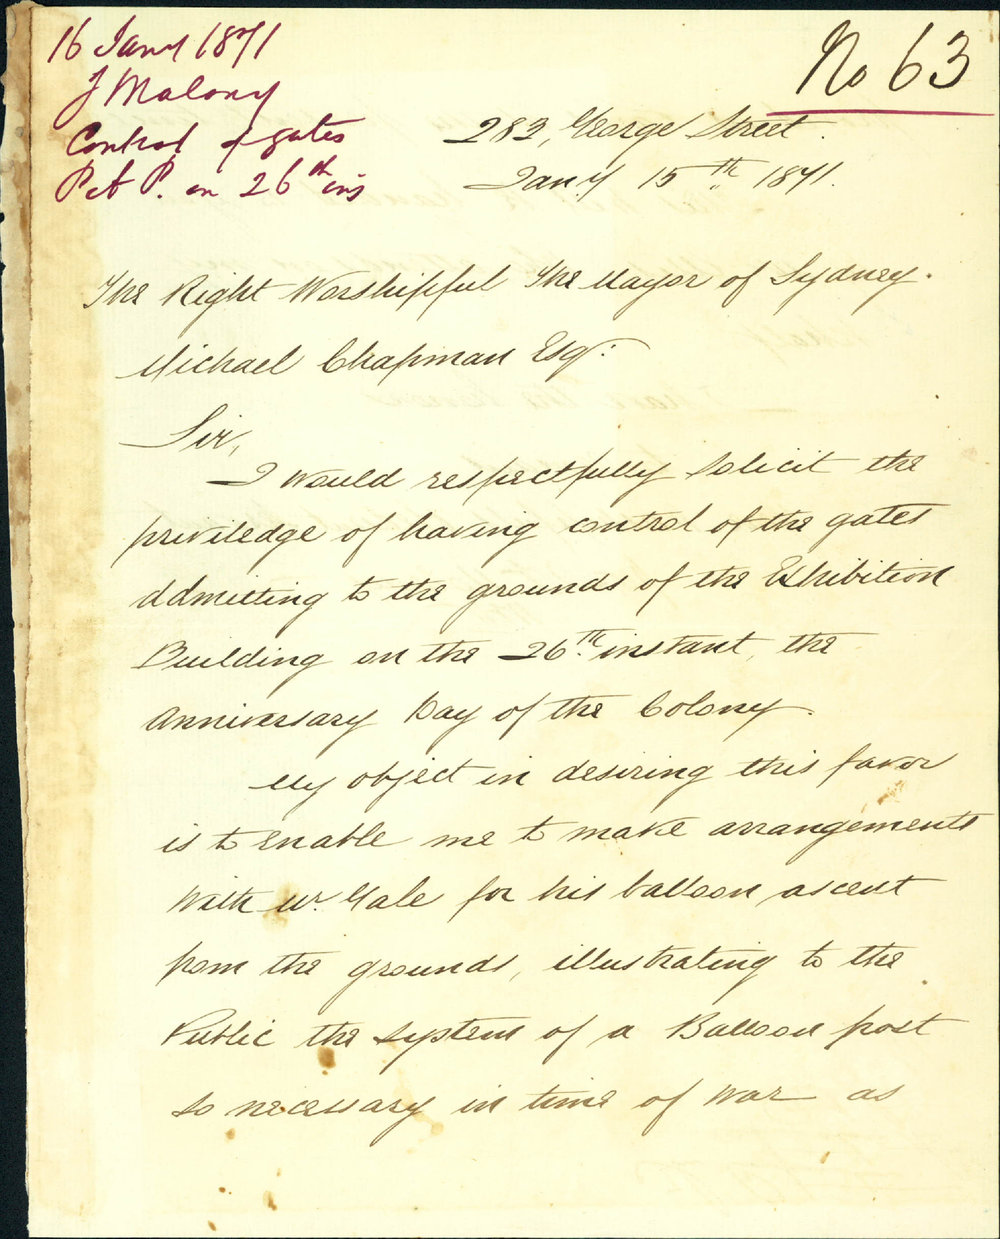 16 Jany 1871
J Malony
Control of gates
P & P. on 26th ins
No 63
283, George Street.
Jany 15th 1871.
The Right Worshipful The Mayor of Sydney.
Michael Chapman Esq:
Sir,
I would respectfully solicit the
priviledge of having control of the gates
admitting to the grounds of the Exhibition
Building on the 26th instant, the
Anniversary Day of the Colony.
My object in desiring this favor
is to enable me to make arrangements
with Mr. Gale for his balloon ascent
from the grounds, illustrating to the
Public the system of a Balloon post
so necessary in time of war as